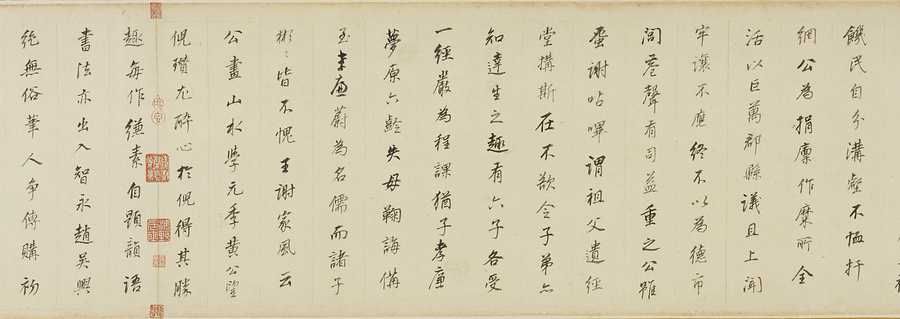 饑民自分溝壑不恤扞
網公為捐廩作糜所全
活以巨萬郡縣議且上聞
牢讓不應終不以為德市
閭巷聲有司益重之公雖
蚤謝呫嗶謂祖父遺經
堂搆斯在不欲令子弟不
知達生之趣有六子各受
一經嚴為程課猶子孝廉
夢原六齡失母鞠誨備
至孝廉蔚為名儒而諸子
彬彬皆不愧王謝家風云
公畫山水學元季黃公望
倪瓚尤醉心於倪得其勝
趣每作縑素自顯韻語
書法亦出入智永趙吳興
絕無俗筆人爭傳購初